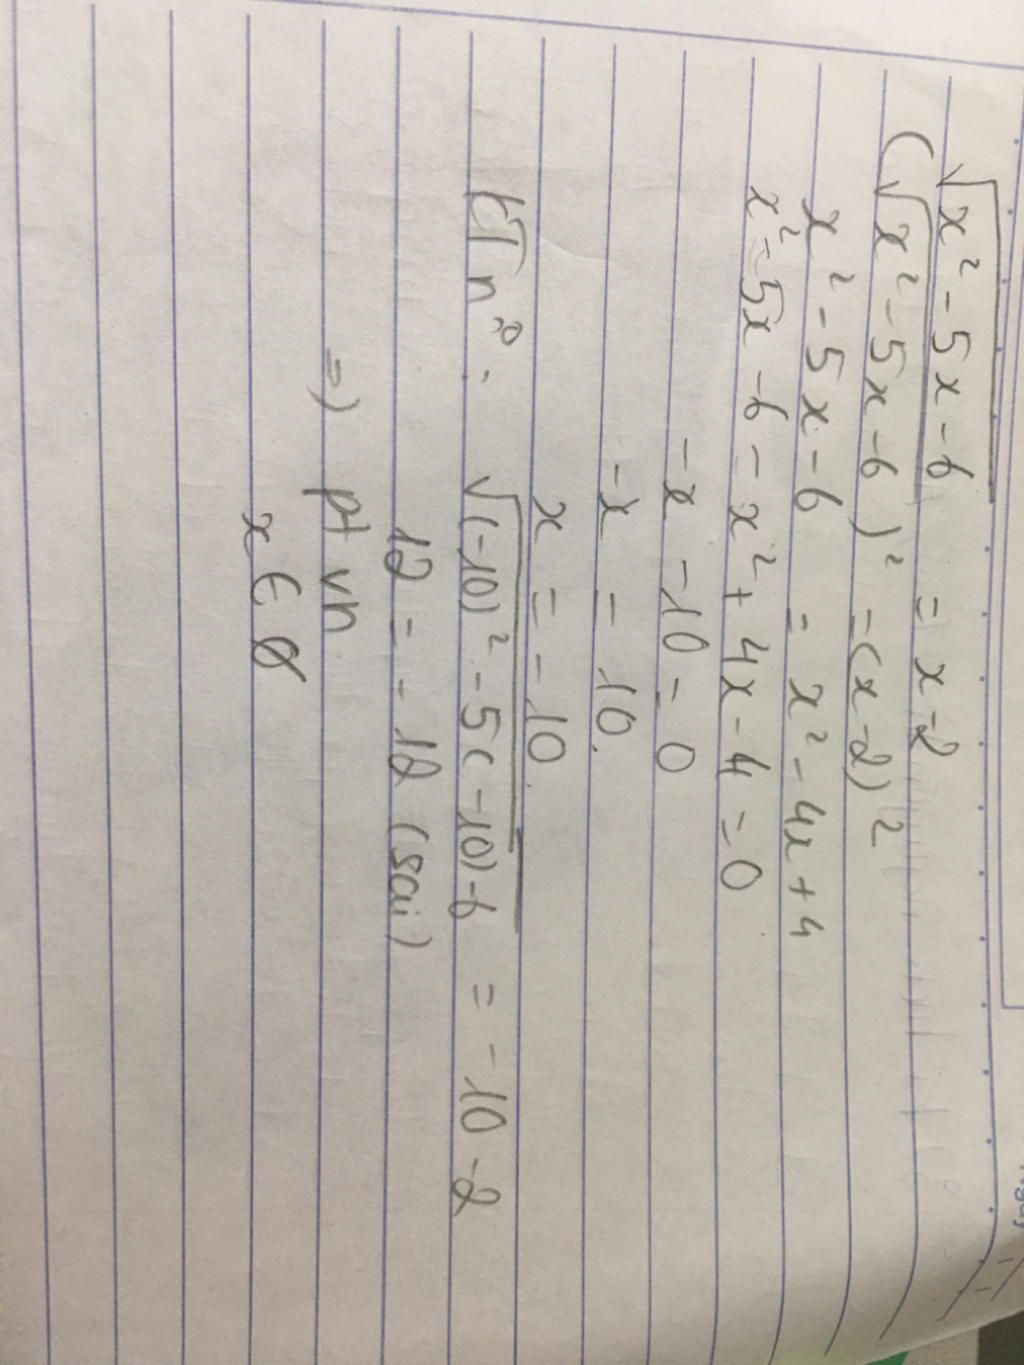 √(x² - 5x - 6) = x - 2
(√(x² - 5x - 6))² = (x - 2)²
x² - 5x - 6 = x² - 4x + 4
x² - 5x - 6 - x² + 4x - 4 = 0
-x - 10 = 0
-x = 10.
x = -10
KT n⁰: √((-10)² - 5(-10) - 6) = -10 - 2
12 = -12 (sai)
=> pt vn
x ∈ ∅